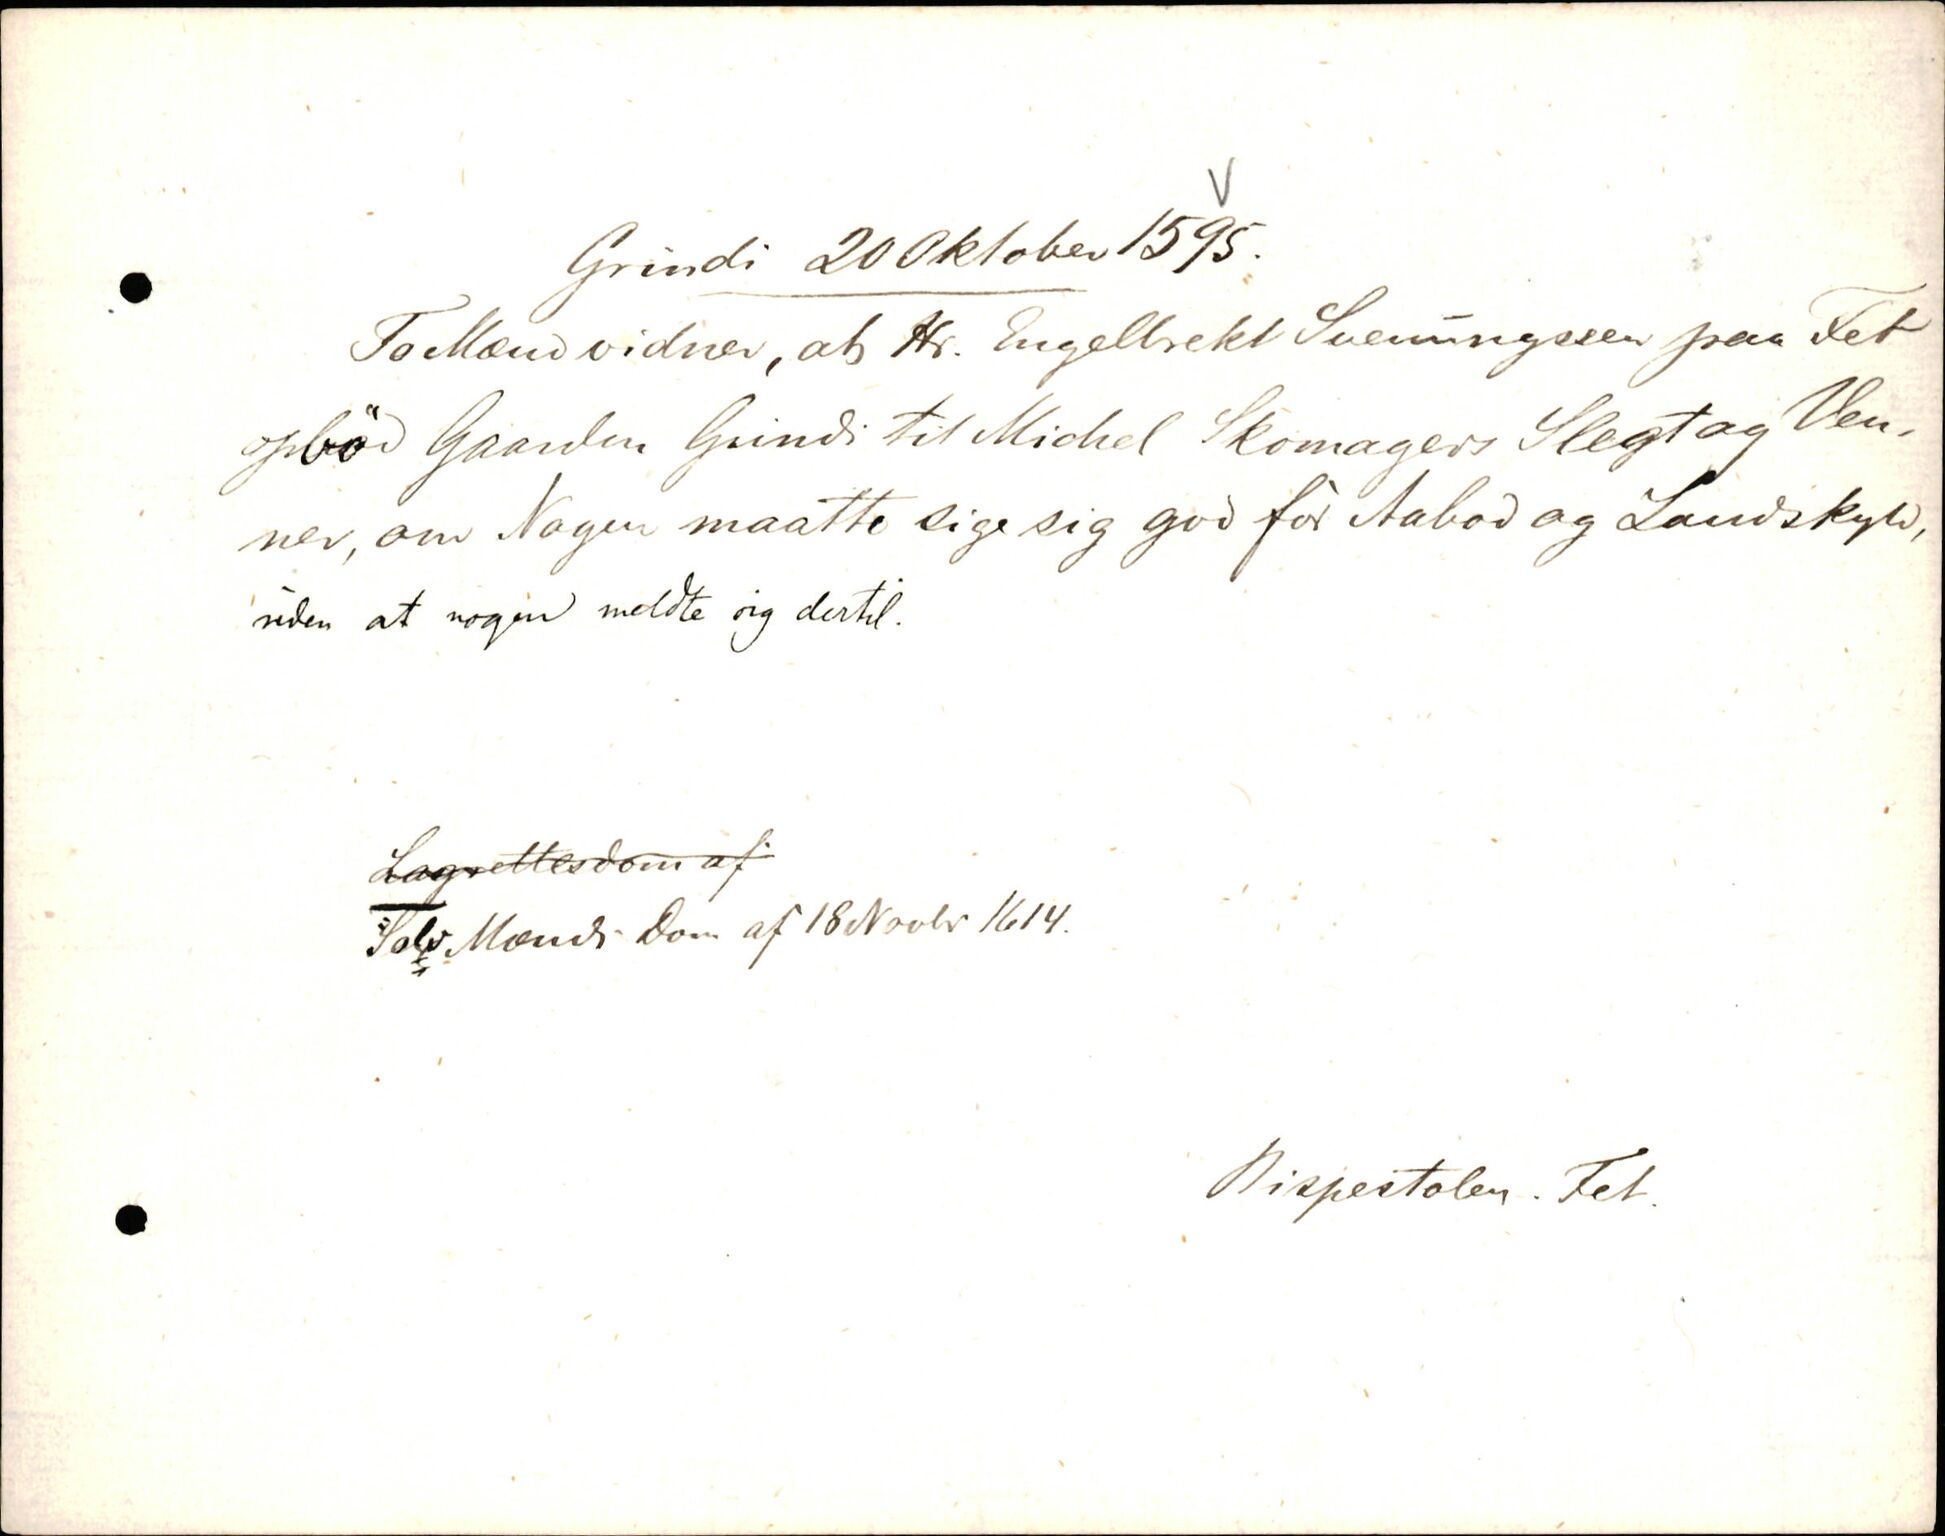 V
Grindi 20 Oktober 1595.
To Mænd vidner, at Hr. Engelbrekt Svenungssen paa Fet
opbød Gaarden Grindi til Michel Skomagers Slegt og Ven-
ner, om Nogen maatte sige sig god for Aabod og Landskyld,
uden at nogen meldte sig dertil.
Lagrettesdom af
Tolv Mænds Dom af 18 Novbr 1614.
Bispestolen. Fet.